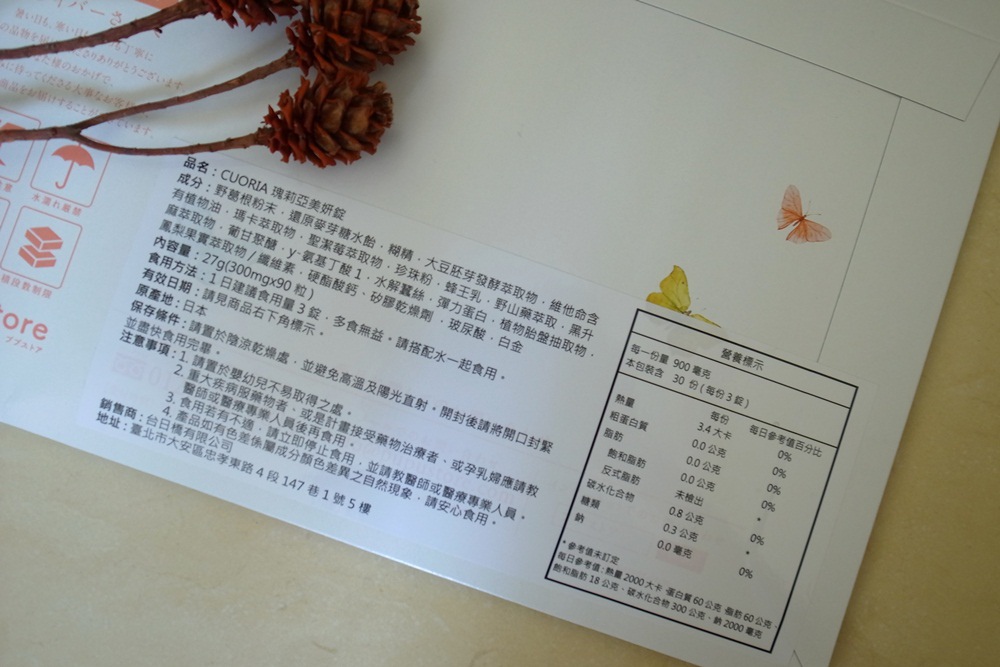 イバーさ
暑い日も、寒い日も
丁寧に
の品物を届
さりありがとうございます
な様のおかげで、
に待ってくださる大事なお客
商品をお届けすることが
います。
水濡れ厳禁
積段数制限
tore
プブストア
品名：CUORIA 瑰莉亞美妍錠
成分：野葛根粉末．還原麥芽糖水飴．糊精．大豆胚芽發酵萃取物．維他命含
有植物油．瑪卡萃取物．聖潔莓萃取物．珍珠粉．蜂王乳．野山藥萃取．黑升
麻萃取物．葡甘聚醣．y-氨基丁酸1．水解蠶絲．彈力蛋白．植物胎盤抽取物．
鳳梨果實萃取物/纖維素．硬酯酸鈣．矽膠乾燥劑．玻尿酸．白金
內容量：27g(300mgx90 粒)
食用方法：1日建議食用量3錠．多食無益。請搭配水一起食用。
有效日期：請見商品右下角標示。
原產地：日本
保存條件：請置於陰涼乾燥處．並避免高溫及陽光直射。開封後請將開口封緊
並盡快食用完畢。
注意事項：1. 請置於嬰幼兒不易取得之處。
2. 重大疾病服藥物者、或是計畫接受藥物治療者、或孕乳婦應請教
醫師或醫療專業人員後再食用。
3. 食用若有不適．請立即停止食用．並請教醫師或醫療專業人員。
4. 產品如有色差係屬成分顏色差異之自然現象．請安心食用。
銷售商：台日橋有限公司
地址：臺北市大安區忠孝東路4段147巷1號5樓
營養標示
每一份量 900 毫克
本包裝含 30 份(每份3錠)
每份 每日參考值百分比
熱量 3.4 大卡 0%
粗蛋白質 0.0 公克 0%
脂肪 0.0 公克 0%
飽和脂肪 0.0 公克 0%
反式脂肪 未檢出 *
碳水化合物 0.8 公克 0%
糖類 0.3 公克 *
鈉 0.0 毫克 0%
*參考值未訂定
每日參考值:熱量2000大卡、蛋白質60公克、脂肪60公克、
飽和脂肪18公克、碳水化合物300公克、鈉2000毫克